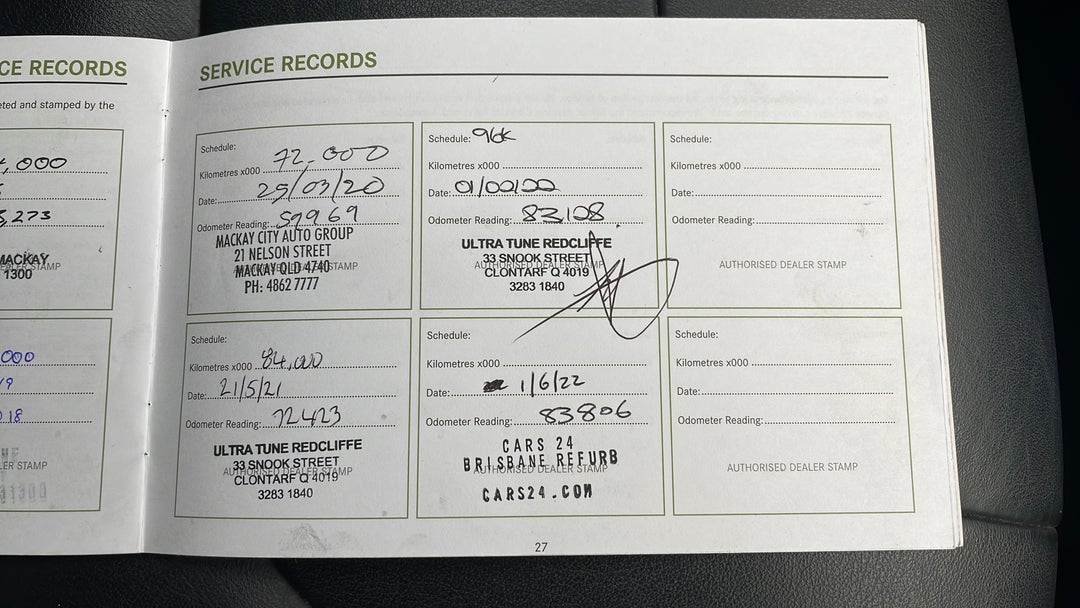 CE RECORDS
eted and stamped by the
,000
5,273
MACKAY
LER STAMP
1300
000
9
018
LER STAMP
SERVICE RECORDS
Schedule:
Kilometres x000 72.000
Date: 25/03/20
Odometer Reading: 59969
MACKAY CITY AUTO GROUP
21 NELSON STREET
AUTHORISED DEALER STAMP
MACKAY QLD 4740
PH: 4862 7777
Schedule: 96k
Kilometres x000
Date: 01/00/00
Odometer Reading: 83,108
ULTRA TUNE REDCLIFFE
33 SNOOK STREET
AUTHORISED DEALER STAMP
CLONTARF Q 4019
3283 1840
Schedule:
Kilometres x000
Date:
Odometer Reading:
AUTHORISED DEALER STAMP
Schedule:
Kilometres x000 84,000
Date: 21/5/21
Odometer Reading: 72423
ULTRA TUNE REDCLIFFE
33 SNOOK STREET
AUTHORISED DEALER STAMP
CLONTARF Q 4019
3283 1840
Schedule:
Kilometres x000
Date: 1/6/22
Odometer Reading: 83806
CARS 24
BRISBANE REFURB
AUTHORISED DEALER STAMP
CARS24.COM
Schedule:
Kilometres x000
Date:
Odometer Reading:
AUTHORISED DEALER STAMP
27